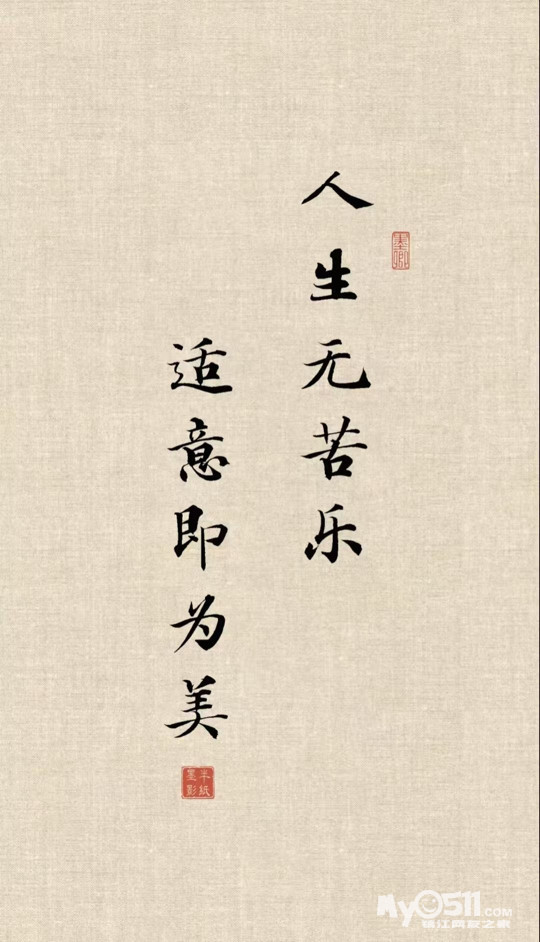 人生无苦乐
适意即为美
半纸
墨影
My0511.COM
镇江网友之家